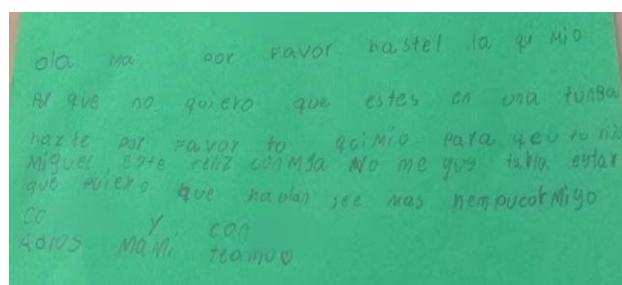 ola ma por favor hastel la qi mio
por que no quiero que estes en una tunba
hazte por favor tu qcimio para qeu tu
Miguel este feliz conmja No me gus taria estar
que quiero que hablan see mas
co y con
adios mami teamo♡